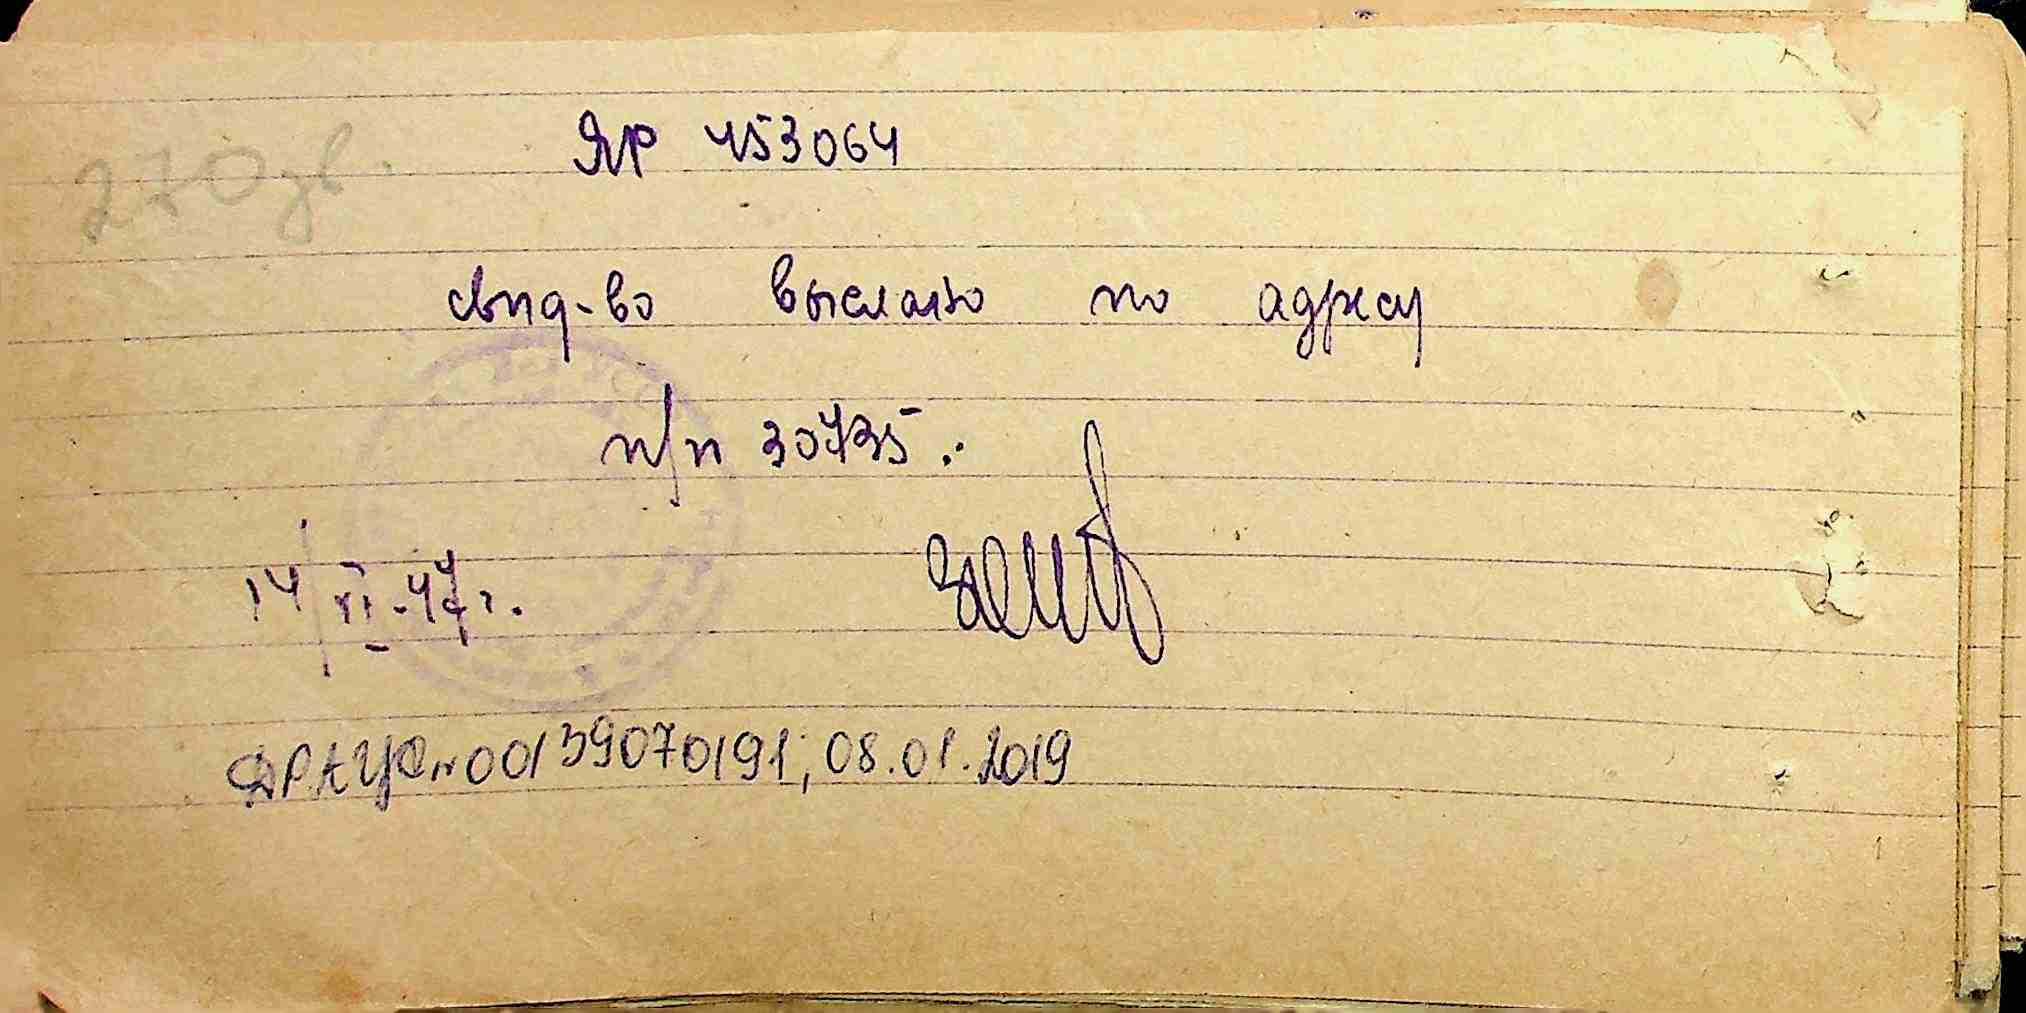 270 зв.
ЯР 453064
свид-во выслано по адресу
п/п 30735.
14/VI-47 г.
ДРАЦСГ №00139070191; 08.01.2019